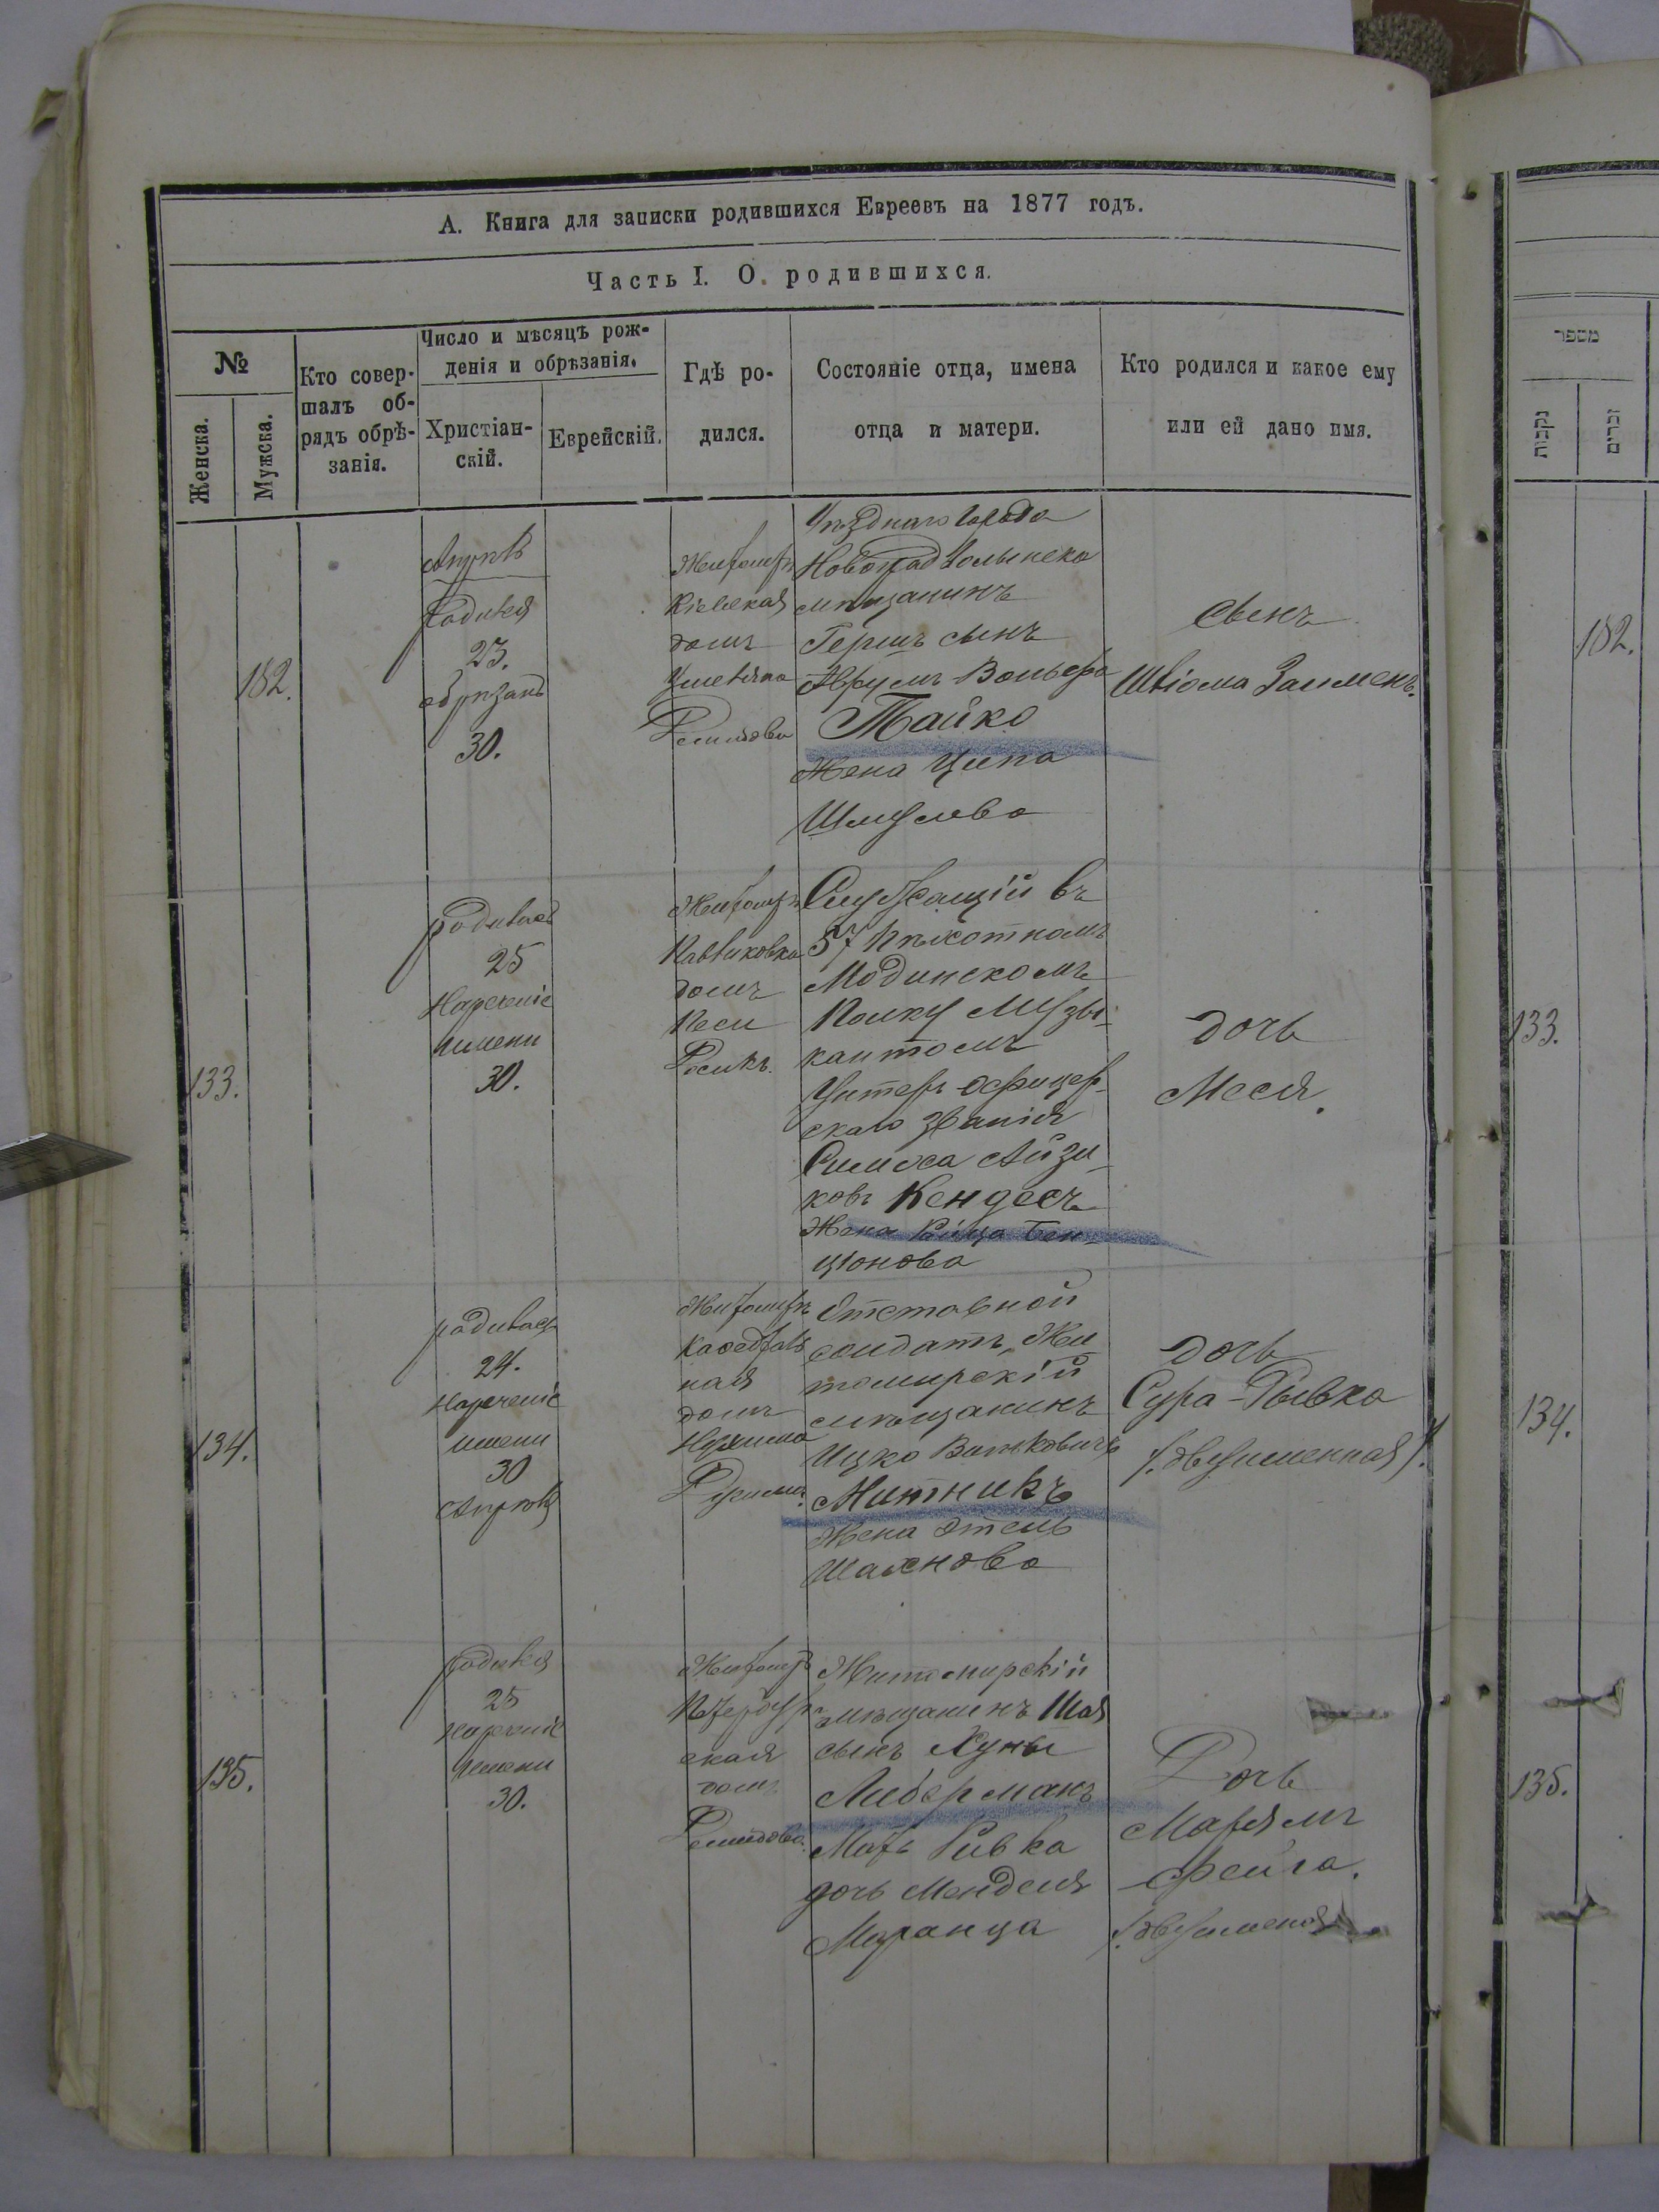 А. Книга для записки родившихся Евреевъ на 1877 годъ.
Часть I. О родившихся.
№
Женска.
Мужска.
Кто совер-
шалъ об-
рядъ обрѣ-
занія.
Число и мѣсяцъ рож-
денія и обрѣзанія.
Христіан-
скій.
Еврейскій.
Гдѣ ро-
дился.
Состояніе отца, имена
отца и матери.
Кто родился и какое ему
или ей дано имя.
182.
Апрѣль
Родился
23.
обрѣзанъ
30.
Житомиръ
Кіевская
домъ
Уѣзднаго города
Новоградволынска
мѣщанинъ
Гершъ сынъ
Аврумъ-Вольфа
Тайко
Жена Ципа
Шмулева
сынъ
Швіома Залменъ.
133.
родилась
25
Нареченіе
имени
30.
Житомиръ
Павликовка
домъ
Песи
Росикъ.
Служащій въ
57 пѣхотномъ
Модлинскомъ
Полку музы-
кантомъ
Унтеръ-офицер-
скаго званія
Симха Айзи-
ковъ Кендесъ
Жена Ривца Бен-
ціонова
дочь
Меся.
134.
родилась
24.
Нареченіе
имени
30
Апрѣля
Житомиръ
Каѳедраль
ная
домъ
Нухима
Отставной
солдатъ, Жи
томирскій
мѣщанинъ
Ицко Вольковичъ
Митникъ
Жена Этель
Шахнова
дочь
Сура-Рывка
/двуименная/.
135.
родился
25
нареченіе
имени
30.
Житомиръ
Петербург
ская
домъ
Житомирскій
мѣщанинъ Шая
сынъ Хуны
Либерманъ
Мать Ривка
дочь Менделя
Маранца
Дочь
Марямъ
Фейга.
/двуименная/
מספר
נקבות
זכרים
182.
133.
134.
135.